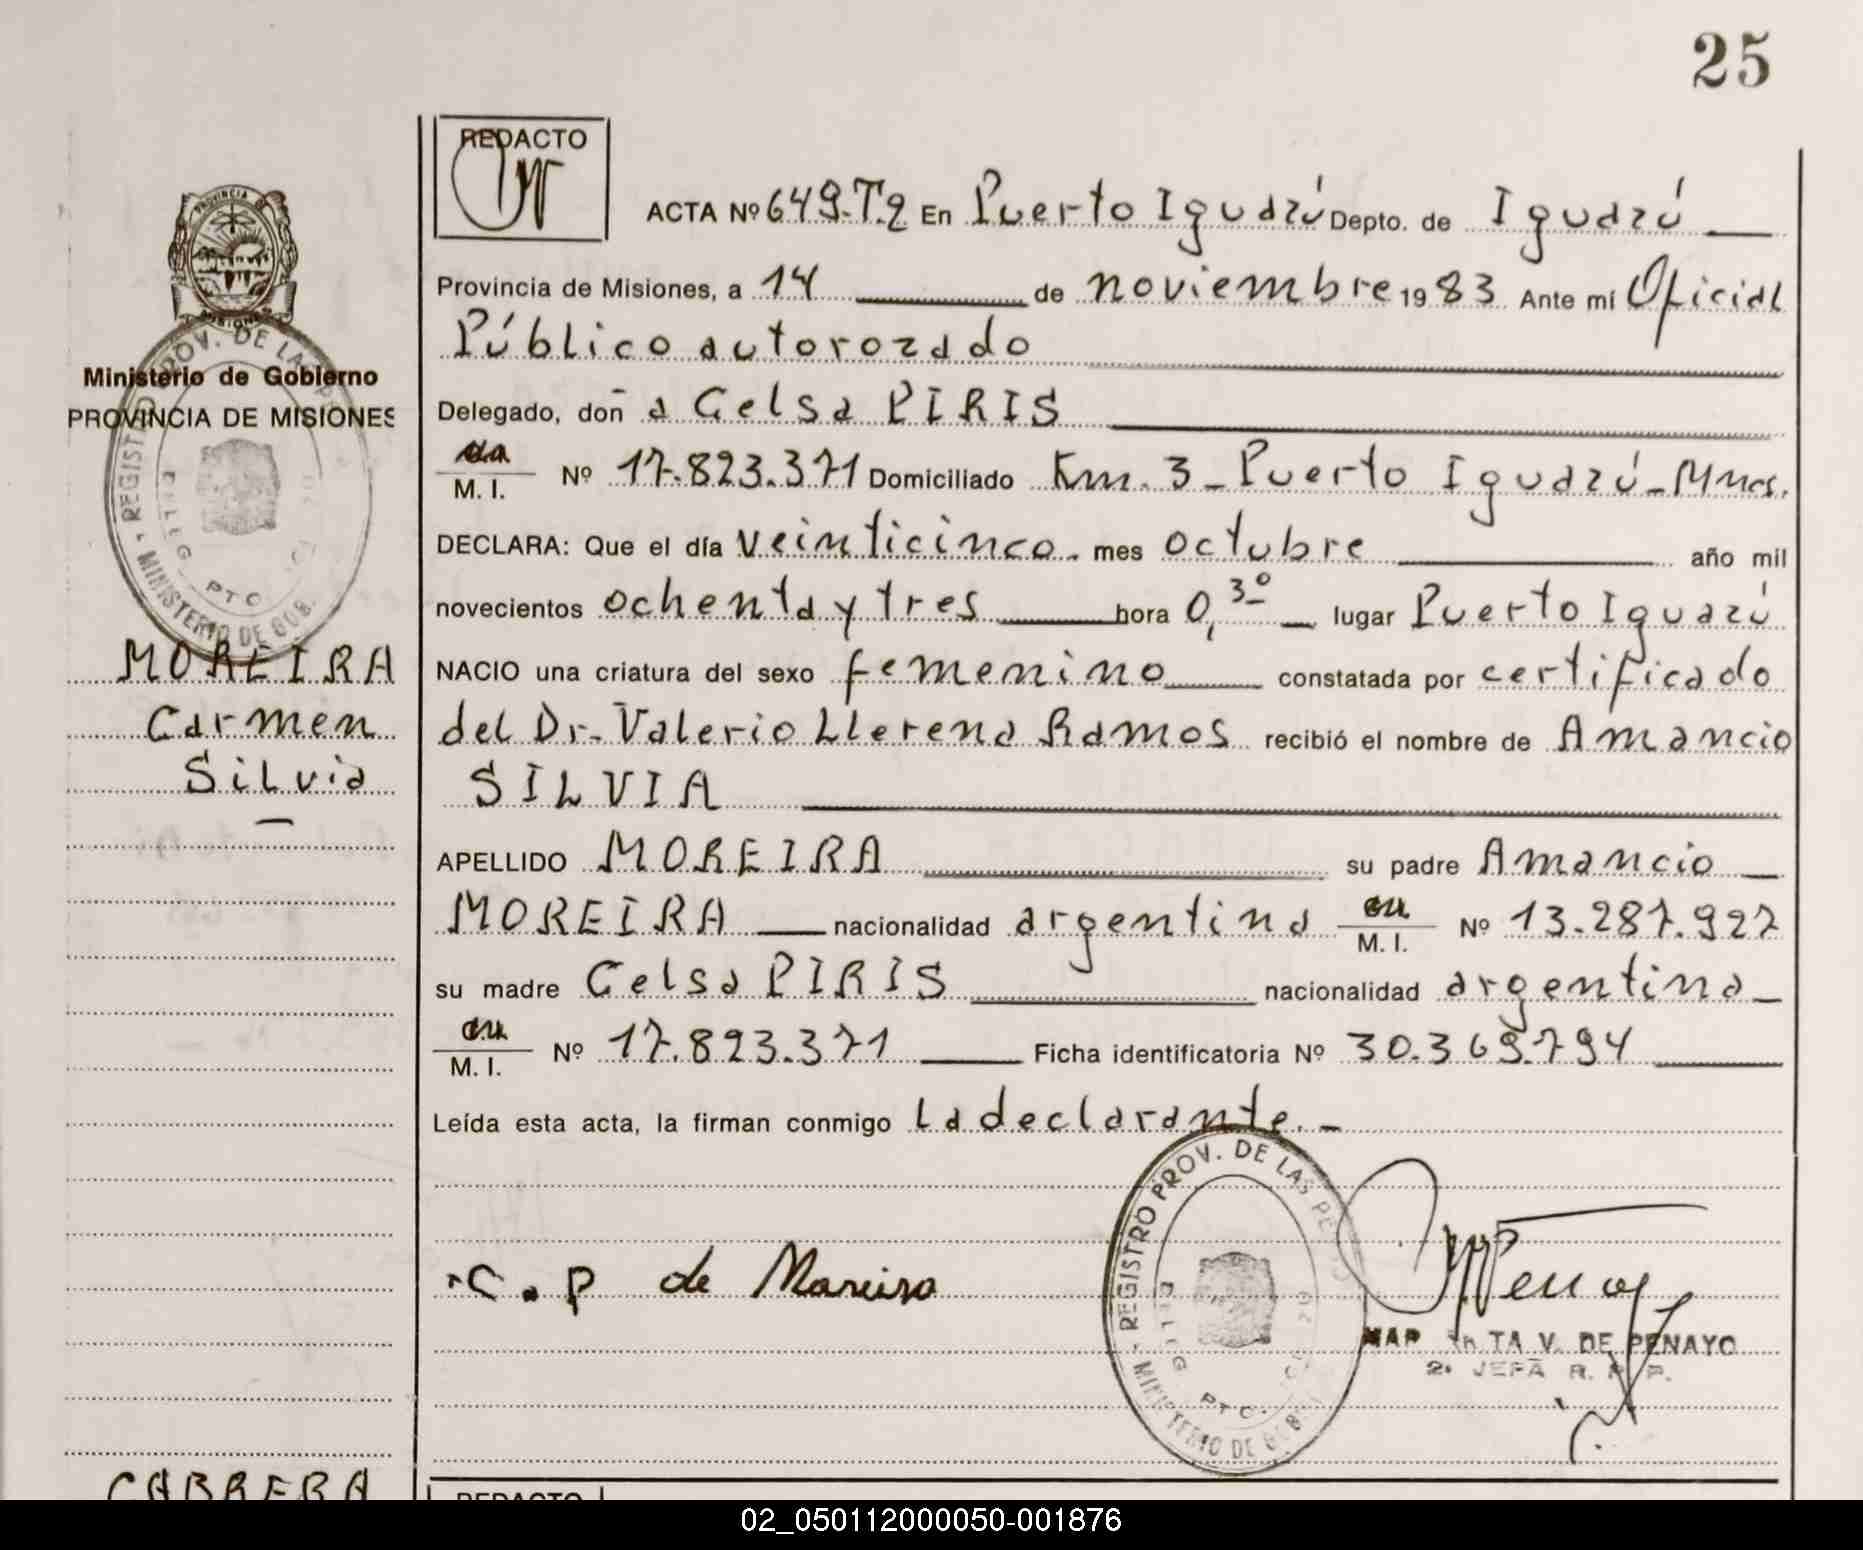 25
REDACTO
ACTA Nº 649-T2 En Puerto Iguazú Depto. de Iguazú
Provincia de Misiones, a 14 de noviembre 1983 Ante mí Oficial
Público autorozado
Delegado, doña Celsa PIRIS
M. I. Nº 17.823.371 Domiciliado Km. 3 - Puerto Iguazú - Mnes.
DECLARA: Que el día veinticinco. mes octubre año mil
novecientos ochenta y tres hora 0,30 lugar Puerto Iguazú
NACIO una criatura del sexo femenino constatada por certificado
del Dr. Valerio Llerena Ramos recibió el nombre de Amancio
SILVIA
APELLIDO MOREIRA su padre Amancio
MOREIRA nacionalidad argentina M. I. Nº 13.287.927
su madre Celsa PIRIS nacionalidad argentina
M. I. Nº 17.823.371 Ficha identificatoria Nº 30.369.794
Leída esta acta, la firman conmigo la declarante.-
C. P de Moreira
REGISTRO PROV. DE LAS PE
MINISTERIO DE GOB.
PTO.
TA V. DE PENAYO
2º JEFA R. P. P.
PROVINCIA DE
MISIONES
Ministerio de Gobierno
PROVINCIA DE MISIONES
REGISTRO PROV. DE LAS P
MINISTERIO DE GOB.
PTO
MOREIRA
Carmen
Silvia
CABRERA
REDACTO
02_050112000050-001876